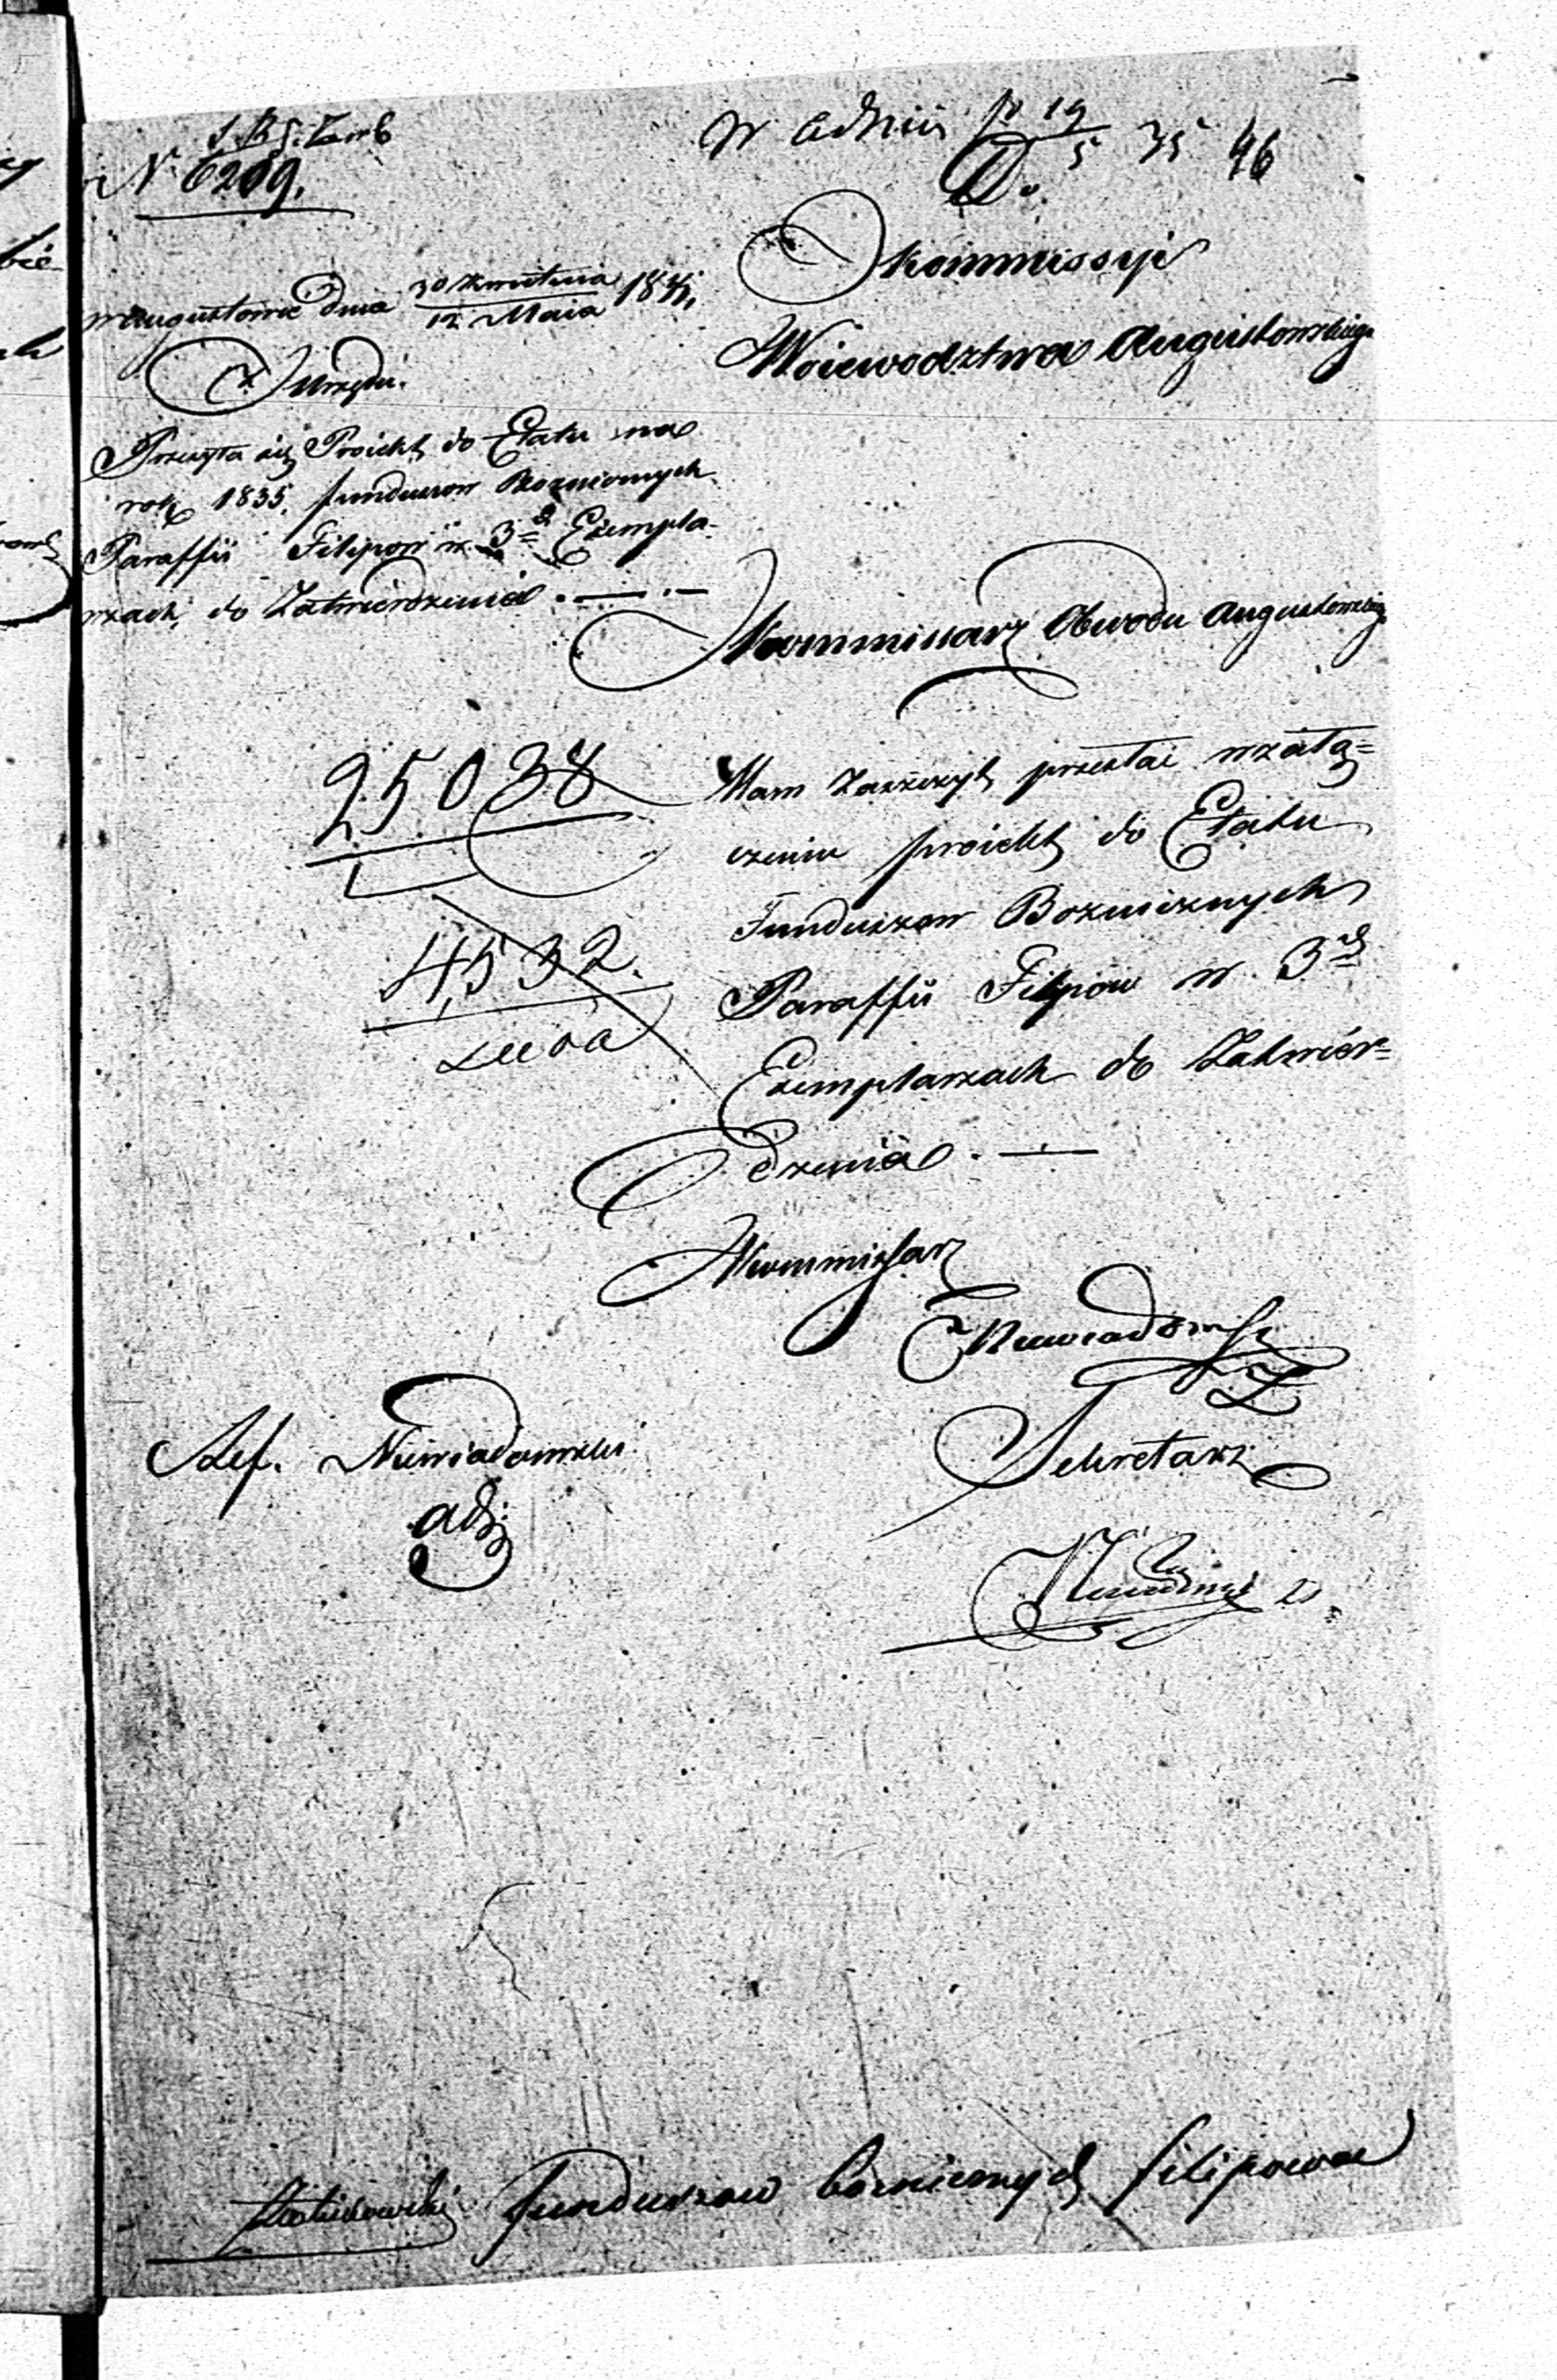 N 6209.
46
Do
Kommissyi
Woiewodztwa Augustowskiego
w Augustowie dnia 30 Kwietnia / 12 Maia 183
Z Urzędu.
Przesyła się Proiekt do Etatu na
rok 1835. funduszow Boznicznych
Paraffii Filipow w 3ch Exempla-
rzach, do Zatwierdzenia . — . —
Kommissarz Obwodu Augustowskiego
25038
4,532
Mam Zaszczyt przesłać w załą=
czeniu proiekt do Etatu
Funduszow Boznicznych
Paraffii Filipow w 3ch
Exemplarzach do Zatwier=
dzenia . —
Kommissarz
Niewiadomski
Sekretarz
Ref. Niewiadomski
adj:
funduszow boznicznych filipowa